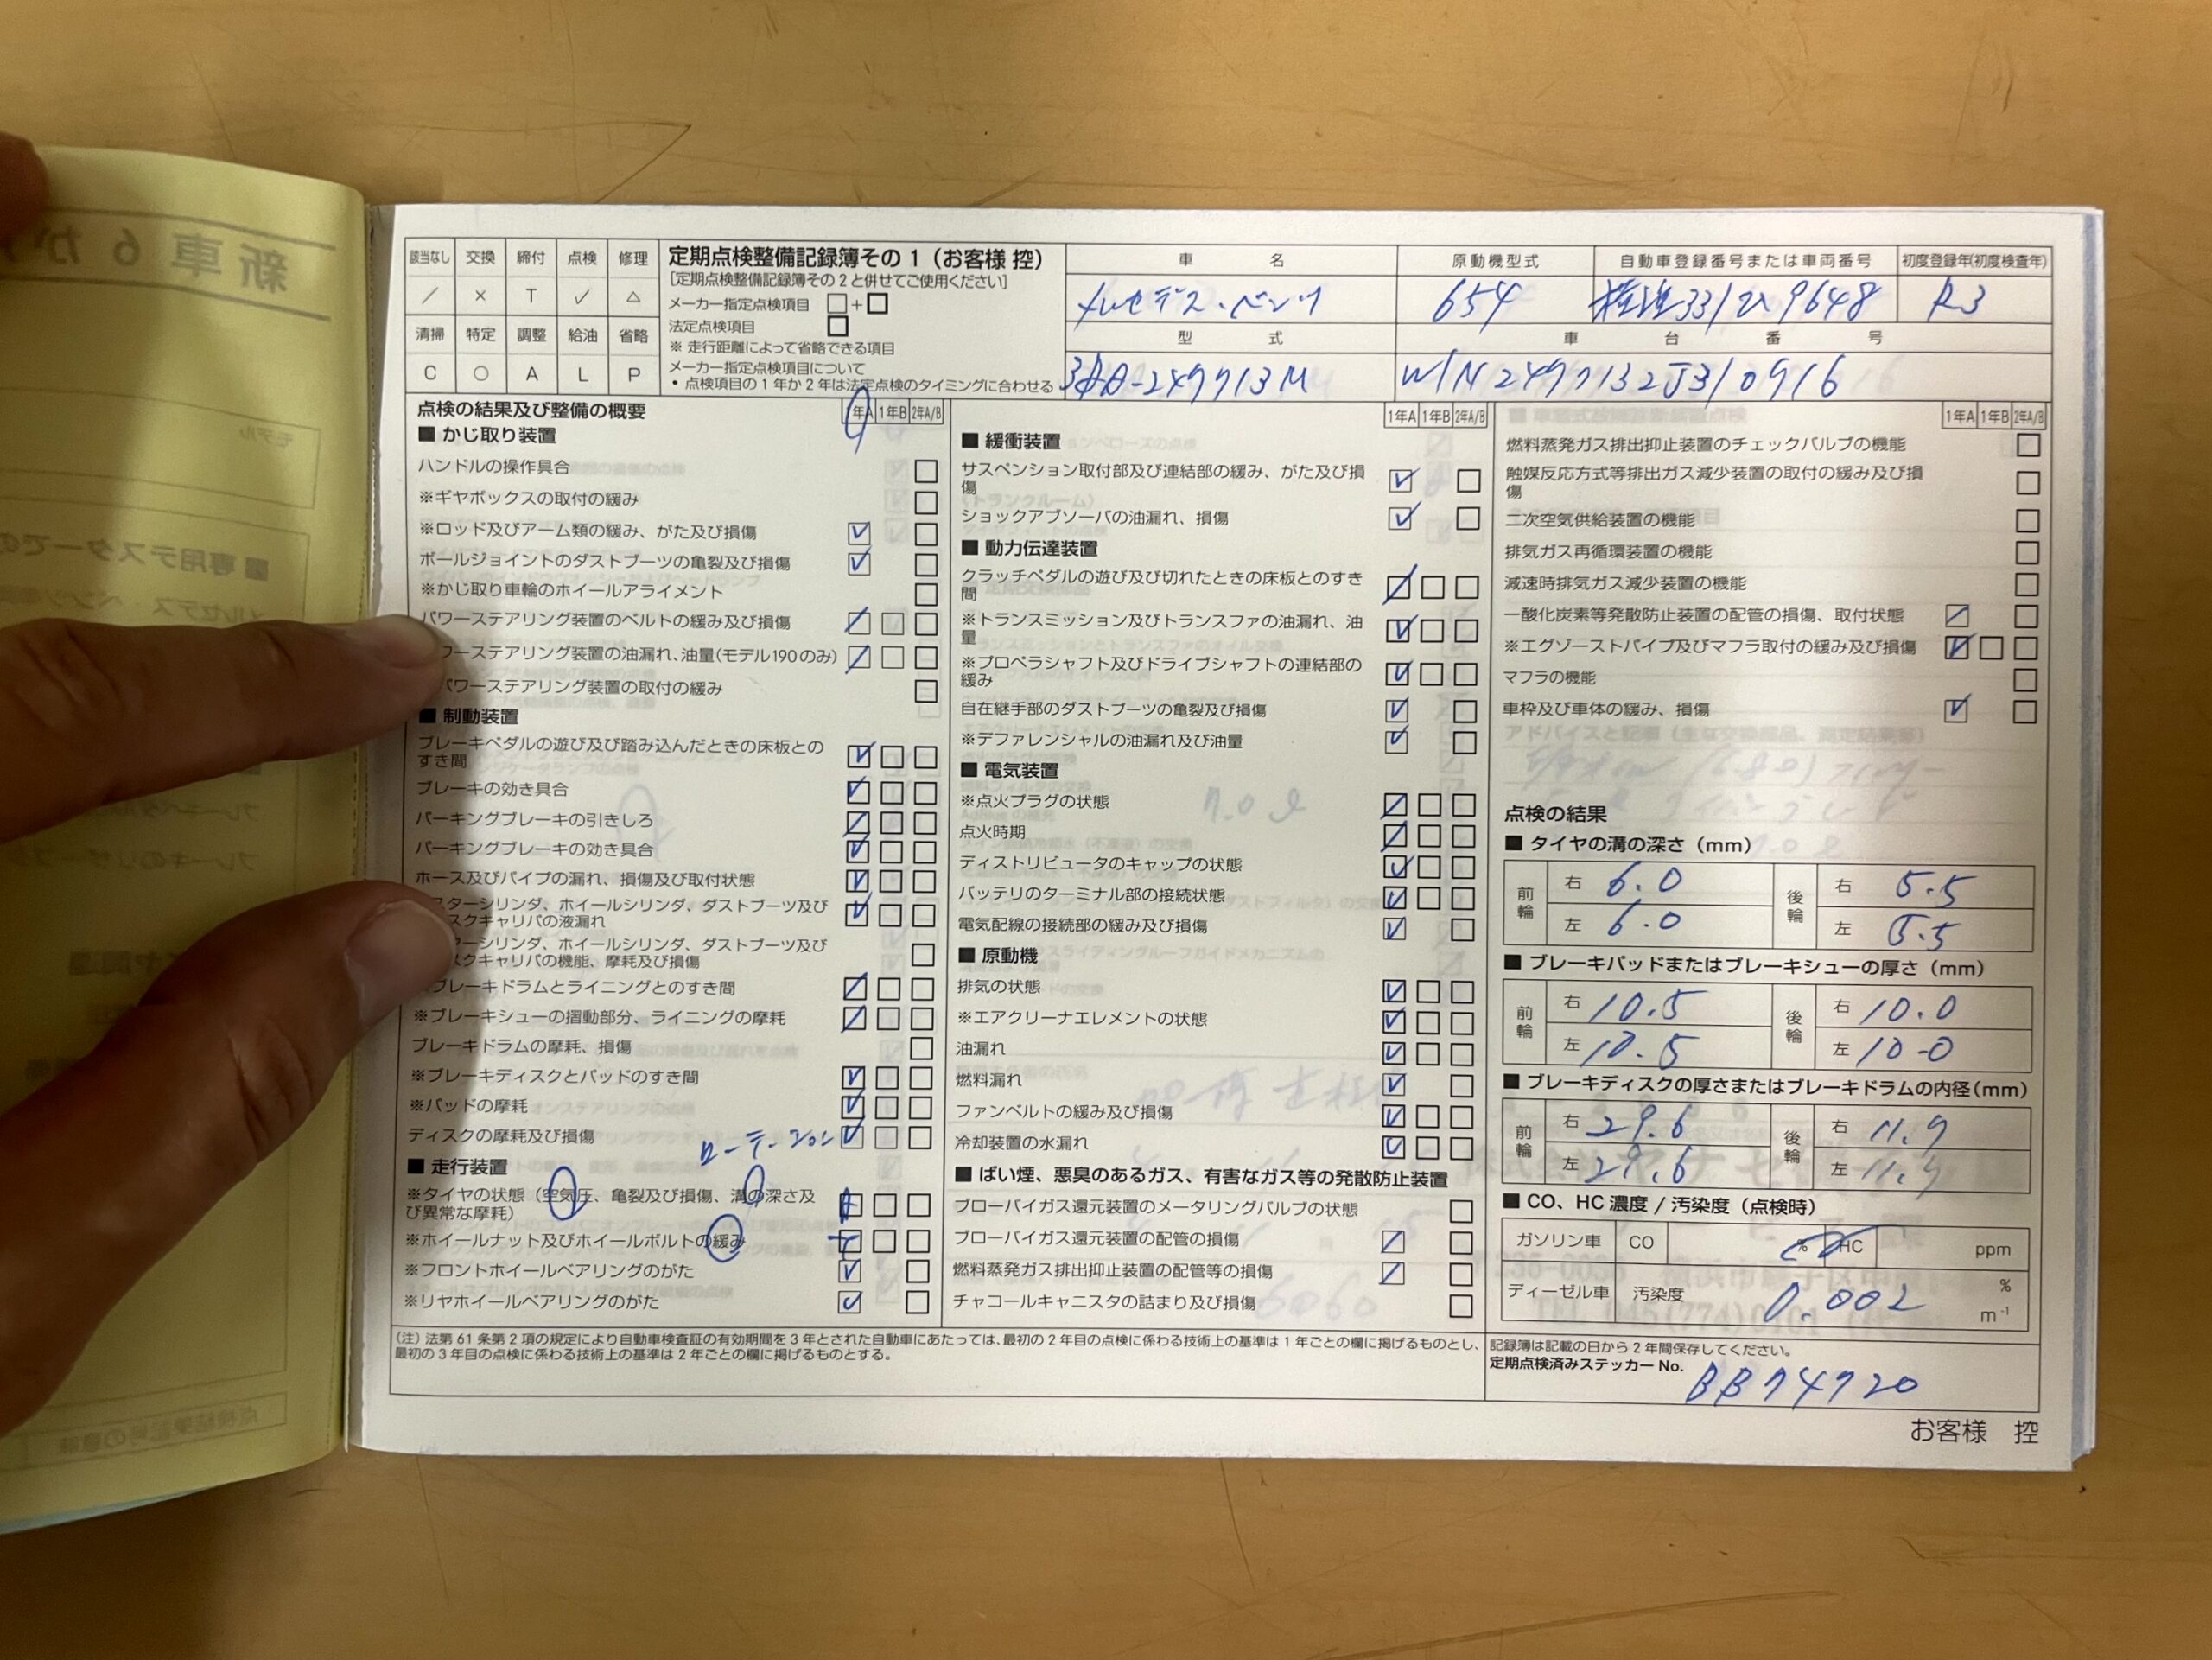 新車6か
モデル
専用テスターでの
該当なし 交換 締付 点検 修理
／ × T ✓ △
清掃 特定 調整 給油 省略
C ○ A L P
定期点検整備記録簿その1（お客様 控）
［定期点検整備記録簿その2と併せてご使用ください］
メーカー指定点検項目 □+□
法定点検項目 □
※ 走行距離によって省略できる項目
メーカー指定点検項目について
• 点検項目の1年か2年は法定点検のタイミングに合わせる
車名 原動機型式 自動車登録番号または車両番号 初度登録年(初度検査年)
メルセデス・ベンツ 654 9648 R3
型式 車台番号
3DA-247713M W1N2477132J310916
点検の結果及び整備の概要 1年A 1年B 2年A/B
■ かじ取り装置
ハンドルの操作具合
※ギヤボックスの取付の緩み
※ロッド及びアーム類の緩み、がた及び損傷
ボールジョイントのダストブーツの亀裂及び損傷
※かじ取り車輪のホイールアライメント
パワーステアリング装置のベルトの緩み及び損傷
ワーステアリング装置の油漏れ、油量(モデル190のみ)
パワーステアリング装置の取付の緩み
■ 制動装置
ブレーキペダルの遊び及び踏み込んだときの床板との
すき間
ブレーキの効き具合
パーキングブレーキの引きしろ
パーキングブレーキの効き具合
ホース及びパイプの漏れ、損傷及び取付状態
スターシリンダ、ホイールシリンダ、ダストブーツ及び
スクキャリパの液漏れ
ターシリンダ、ホイールシリンダ、ダストブーツ及び
スクキャリパの機能、摩耗及び損傷
ブレーキドラムとライニングとのすき間
※ブレーキシューの摺動部分、ライニングの摩耗
ブレーキドラムの摩耗、損傷
※ブレーキディスクとパッドのすき間
※パッドの摩耗
ディスクの摩耗及び損傷
ローテーション
■ 走行装置
※タイヤの状態（空気圧、亀裂及び損傷、溝の深さ及
び異常な摩耗）
※ホイールナット及びホイールボルトの緩み
※フロントホイールベアリングのがた
※リヤホイールベアリングのがた
1年A 1年B 2年A/B
■ 緩衝装置
サスペンション取付部及び連結部の緩み、がた及び損
傷
ショックアブソーバの油漏れ、損傷
■ 動力伝達装置
クラッチペダルの遊び及び切れたときの床板とのすき
間
※トランスミッション及びトランスファの油漏れ、油
量
※プロペラシャフト及びドライブシャフトの連結部の
緩み
自在継手部のダストブーツの亀裂及び損傷
※デファレンシャルの油漏れ及び油量
■ 電気装置
※点火プラグの状態
点火時期
ディストリビュータのキャップの状態
バッテリのターミナル部の接続状態
電気配線の接続部の緩み及び損傷
■ 原動機
排気の状態
※エアクリーナエレメントの状態
油漏れ
燃料漏れ
ファンベルトの緩み及び損傷
冷却装置の水漏れ
■ ばい煙、悪臭のあるガス、有害なガス等の発散防止装置
ブローバイガス還元装置のメータリングバルブの状態
ブローバイガス還元装置の配管の損傷
燃料蒸発ガス排出抑止装置の配管等の損傷
チャコールキャニスタの詰まり及び損傷
1年A 1年B 2年A/B
燃料蒸発ガス排出抑止装置のチェックバルブの機能
触媒反応方式等排出ガス減少装置の取付の緩み及び損
傷
二次空気供給装置の機能
排気ガス再循環装置の機能
減速時排気ガス減少装置の機能
一酸化炭素等発散防止装置の配管の損傷、取付状態
※エグゾーストパイプ及びマフラ取付の緩み及び損傷
マフラの機能
車枠及び車体の緩み、損傷
点検の結果
■ タイヤの溝の深さ（mm）
前輪 右 6.0 後輪 右 5.5
左 6.0 左 5.5
■ ブレーキパッドまたはブレーキシューの厚さ（mm）
前輪 右 10.5 後輪 右 10.0
左 10.5 左 10.0
■ ブレーキディスクの厚さまたはブレーキドラムの内径(mm)
前輪 右 29.6 後輪 右 11.9
左 29.6 左 11.9
■ CO、HC 濃度 / 汚染度（点検時）
ガソリン車 CO % HC ppm
ディーゼル車 汚染度 0.002 % m⁻¹
（注）法第61条第2項の規定により自動車検査証の有効期間を3年とされた自動車にあたっては、最初の2年目の点検に係わる技術上の基準は1年ごとの欄に掲げるものとし、
最初の3年目の点検に係わる技術上の基準は2年ごとの欄に掲げるものとする。
記録簿は記載の日から2年間保存してください。
定期点検済みステッカー No.
BB74720
お客様 控